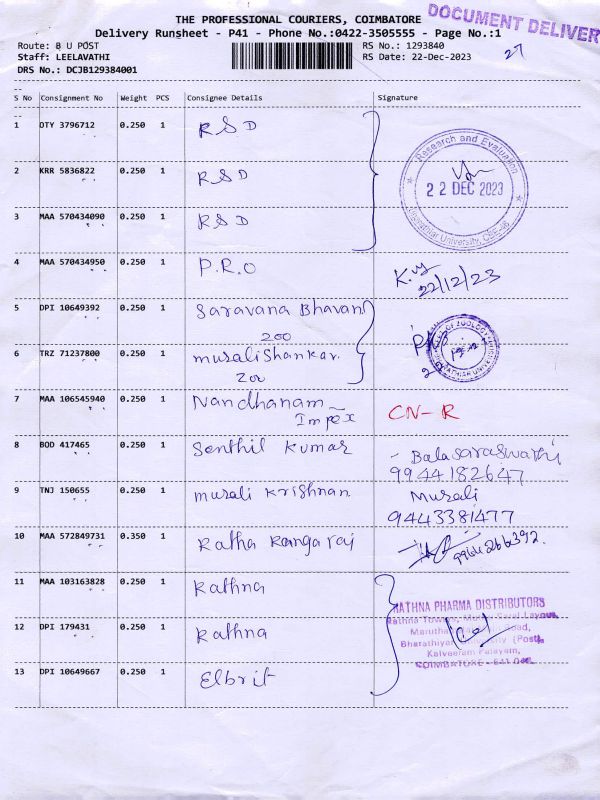 THE PROFESSIONAL COURIERS, COIMBATORE
DOCUMENT DELIVER
Delivery Runsheet - P41 - Phone No.:0422-3505555 - Page No.:1
Route: B U POST
RS No.: 1293840
27
Staff: LEELAVATHI
RS Date: 22-Dec-2023
DRS No.: DCJB129384001
S No Consignment No Weight PCS Consignee Details Signature
1 DTY 3796712 0.250 1 RSD
2 KRR 5836822 0.250 1 RSD
Research and Evaluation
22 DEC 2023
Bharathiar University, CBE-46
3 MAA 570434090 0.250 1 RSD
4 MAA 570434950 0.250 1 P.R.O
22/12/23
5 DPI 10649392 0.250 1 Saravana Bhavan
200
6 TRZ 71237800 0.250 1 muralishankar
200
OF ZOOLOGY
7 MAA 106545940 0.250 1 Nandhanam CN-R
Impex
8 BOD 417465 0.250 1 Senthil Kumar - Balasaraswathi
9944182647
9 TNJ 150655 0.250 1 murali krishnan Murali
9443381477
10 MAA 572849731 0.350 1 Ratha Rangaraj
11 MAA 103163828 0.250 1 Rathna
RATHNA PHARMA DISTRIBUTORS
Rathna Towers,
12 DPI 179431 0.250 1 Rathna
Kalveeram Palayam,
COIMBATORE
13 DPI 10649667 0.250 1 Elbrit